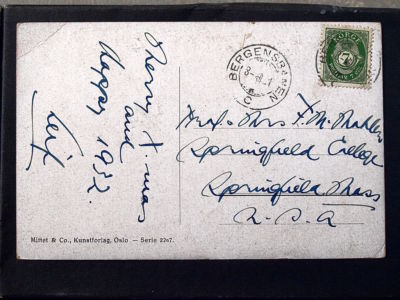 Merry X-mas
and
Happy 1932.
Leif
Mittet & Co., Kunstforlag, Oslo — Serie 2267.
BERGENSBANEN
C
NORGE
7
Mr. & Mrs F. M. Mahler
Springfield College
Springfield Mass
U.S.A